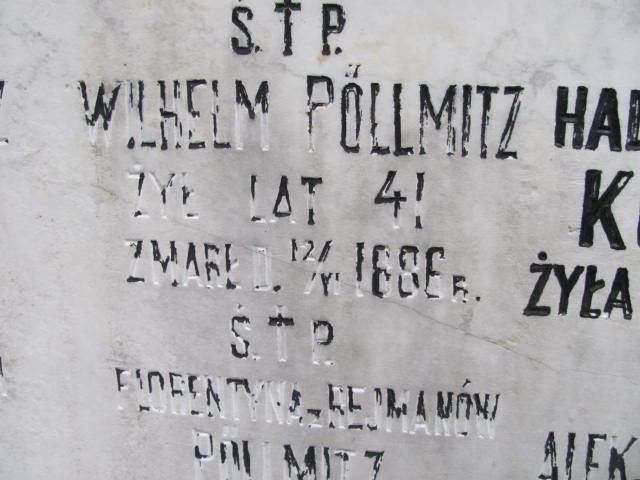 Ś.†P.
WILHELM PÖLLMITZ
ŻYŁ LAT 41
ZMARŁ D. 12/VI 1886 R.
Ś.†P.
FLORENTYNA z REJMANÓW
PÖLLMITZ
HAL
ŻYŁA
ALEK